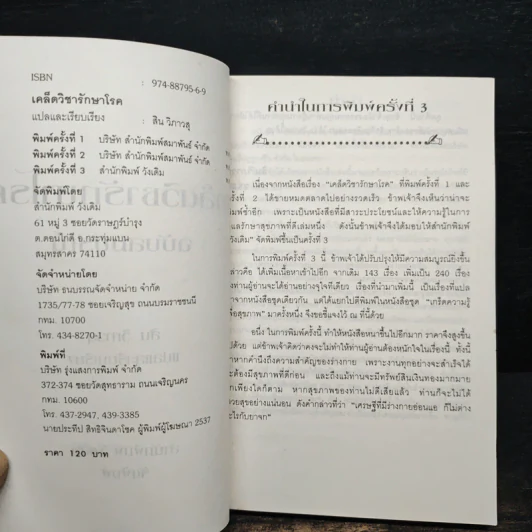 ISBN : 974-88795-6-9
เคล็ดวิชารักษาโรค
แปลและเรียบเรียง : สิน วิภาวสุ
พิมพ์ครั้งที่ 1 บริษัท สำนักพิมพ์สมาพันธ์ จำกัด
พิมพ์ครั้งที่ 2 บริษัท สำนักพิมพ์สมาพันธ์ จำกัด
พิมพ์ครั้งที่ 3 สำนักพิมพ์ วังเดิม
จัดพิมพ์โดย
สำนักพิมพ์ วังเดิม
61 หมู่ 3 ซอยวัดราษฎร์บำรุง
ต.ดอนไก่ดี อ.กระทุ่มแบน
สมุทรสาคร 74110
จัดจำหน่ายโดย
บริษัท ธนบรรณจัดจำหน่าย จำกัด
1735/77-78 ซอยเจริญสุข ถนนบรมราชชนนี
กทม. 10700
โทร. 434-8270-1
พิมพ์ที่
บริษัท รุ่งแสงการพิมพ์ จำกัด
372-374 ซอยวัดสุทธาราม ถนนเจริญนคร
กทม. 10600
โทร. 437-2947, 439-3385
นายประทีป สิทธิจินดาโชค ผู้พิมพ์ผู้โฆษณา 2537
ราคา 120 บาท
คำนำในการพิมพ์ครั้งที่ 3
เนื่องจากหนังสือเรื่อง "เคล็ดวิชารักษาโรค" ที่พิมพ์ครั้งที่ 1 และ
ครั้งที่ 2 ได้ขายหมดตลาดไปอย่างรวดเร็ว ข้าพเจ้าจึงเห็นว่าน่าจะ
พิมพ์ซ้ำอีก เพราะเป็นหนังสือที่มีสาระประโยชน์และให้ความรู้ในการ
แลรักษาสุขภาพที่ดีเล่มหนึ่ง ดังนั้นข้าพเจ้าจึงได้มอบให้สำนักพิมพ์
วังเดิม" จัดพิมพ์ขึ้นเป็นครั้งที่ 3
ในการพิมพ์ครั้งที่ 3 นี้ ข้าพเจ้าได้ปรับปรุงให้มีความสมบูรณ์ยิ่งขึ้น
ล่าวคือ ได้เพิ่มเนื้อหาเข้าไปอีก จากเดิม 143 เรื่อง เพิ่มเป็น 240 เรื่อง
งท่านผู้อ่านจะได้อ่านอย่างจุใจทีเดียว เรื่องที่นำมาเพิ่มนี้ เป็นเรื่องที่แปล
าจากหนังสือชุดเดียวกัน แต่ได้แยกไปตีพิมพ์ในหนังสือชุด "เกร็ดความรู้
พื่อสุขภาพ" มาครั้งหนึ่ง จึงขอชี้แจงไว้ ณ ที่นี้ด้วย
อนึ่ง ในการพิมพ์ครั้งนี้ ทำให้หนังสือหนาขึ้นไปอีกมาก ราคาจึงสูงขึ้น
แต่ข้าพเจ้าคิดว่าคงจะไม่ทำให้ท่านผู้อ่านต้องหนักใจในเรื่องนี้ ทั้งนี้
หากคำนึงถึงความสำคัญของร่างกาย เพราะงานทุกอย่างจะสำเร็จได้
ะต้องมีสุขภาพที่ดีก่อน และถึงแม้ท่านจะมีทรัพย์สินเงินทองมากมาย
กเพียงใดก็ตาม หากสุขภาพของท่านไม่ดีเสียแล้ว ท่านก็จะไม่ได้
วยสุขอย่างแน่นอน ดังคำกล่าวที่ว่า "เศรษฐีที่มีร่างกายอ่อนแอ ก็ไม่ต่าง
ะไรกับยาจก"